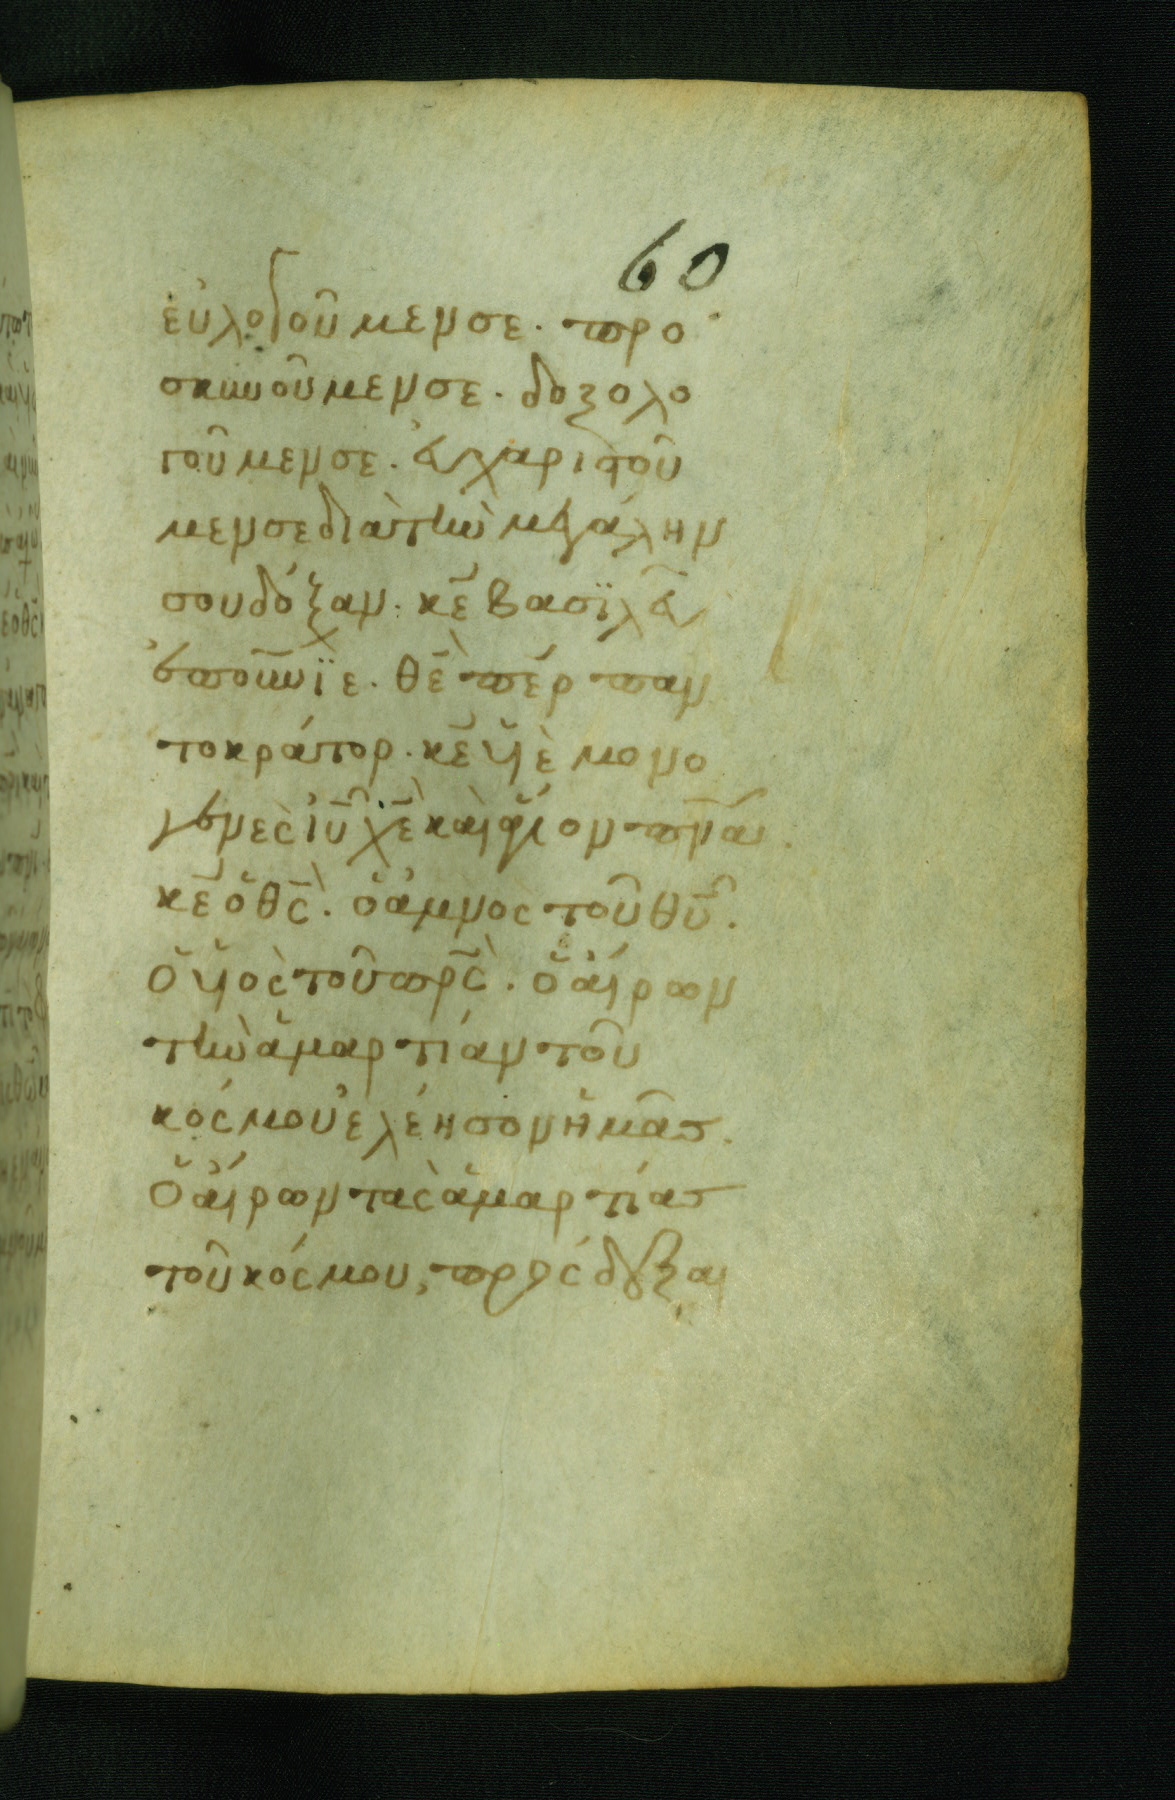 60
εὐλογοῦμεν σε. προ
σκυνοῦμεν σε. δοξολο
γοῦμεν σε. εὐχαριστοῦ
μεν σε διὰ τὴν μεγάλην
σου δόξαν. κε βασϊλεῦ
ἐπουνϊε. θε περ παν
τοκράτορ. κε ὑιὲ μονο
γενὲς ιυ χε καὶ ἅγιον πνα.
κε ὁ θς. ὁ ἀμνος τοῦ θυ.
ὁ ὑιὸς τοῦ πρς. ὁ αἴρων
τὴν ἁμαρτίαν τοῦ
κόσμου ἐλέησον ἡμᾶς.
ὁ αἴρων τὰς ἁμαρτίας
τοῦ κόσμου, πρόσδεξαι